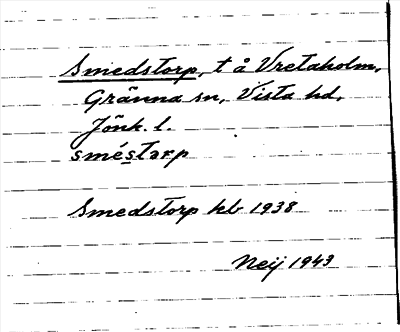 Smedstorp, t å Vretaholm,
Gränna sn, Vista hd,
Jönk. l.
sméstarp
Smedstorp kb 1938
Neij 1943